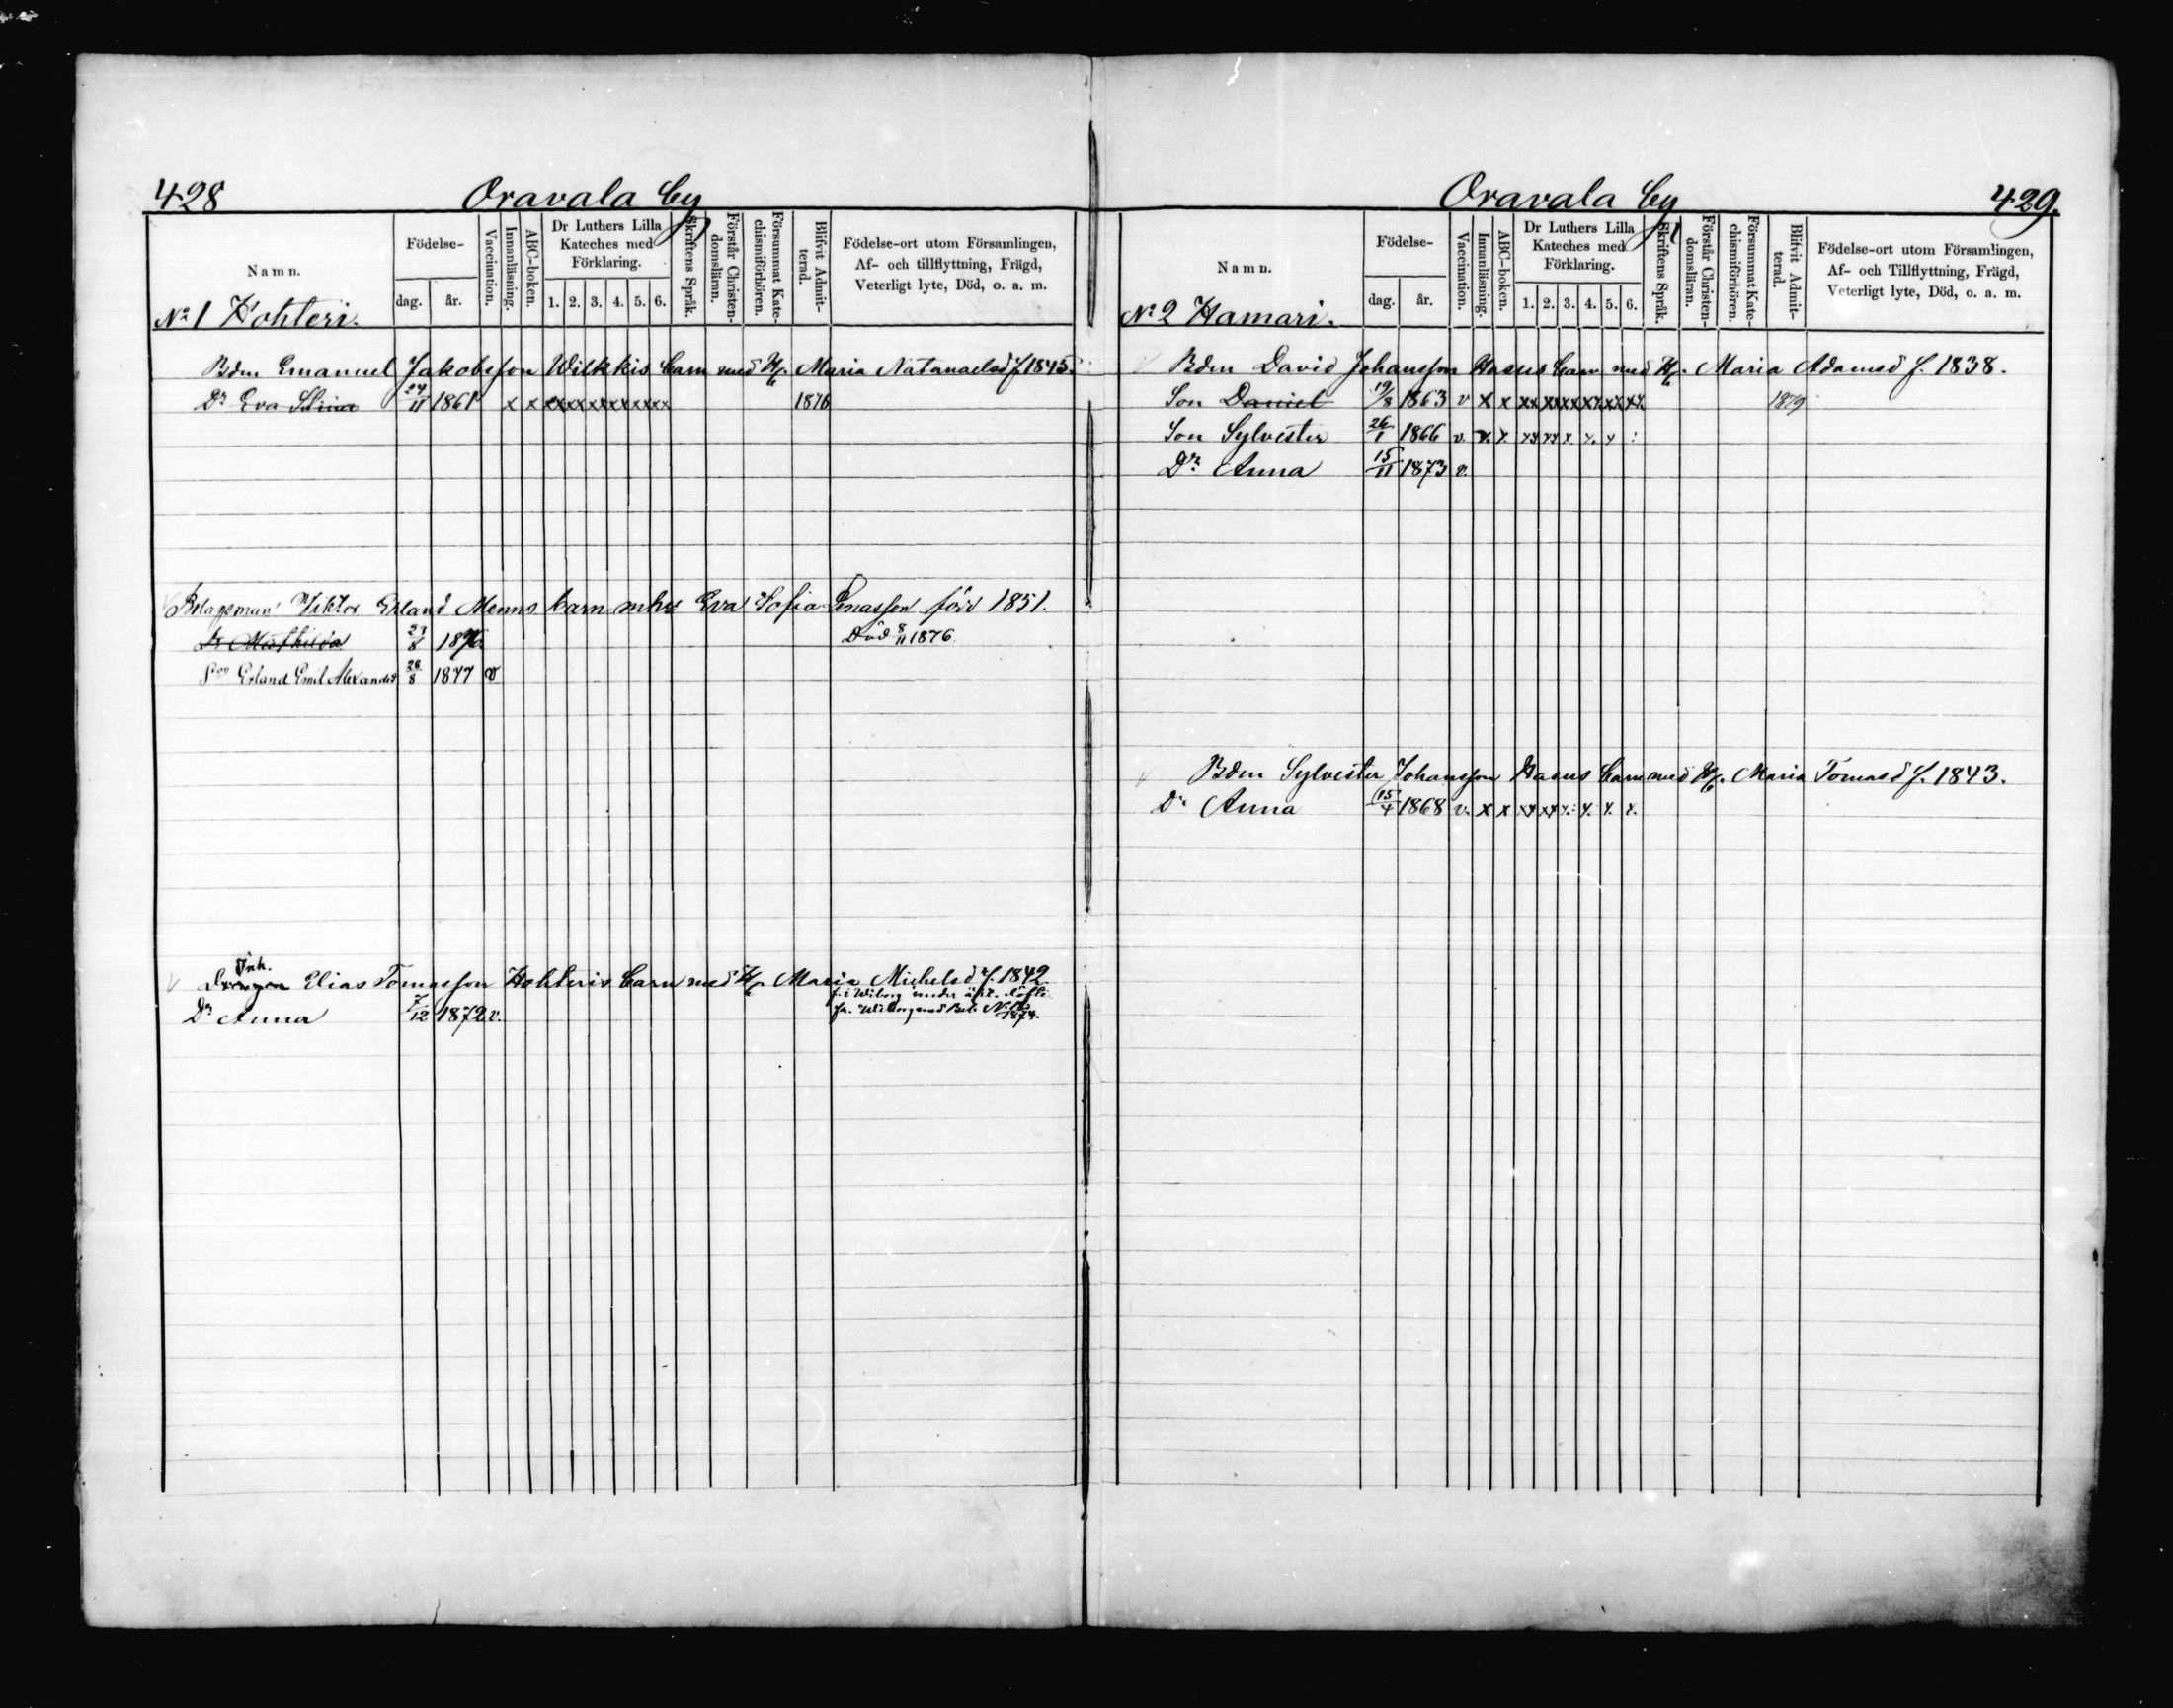 428 Oravala by
Namn. Födelse- dag. år. Vaccination. Innanläsning. ABC-boken. Dr Luthers Lilla Kateches med Förklaring. 1. 2. 3. 4. 5. 6. Skriftens Språk. Förstår Christendomsläran. Försummat Katechismiförhören. Blifvit Admitterad. Födelse-ort utom Församlingen, Af- och tillflyttning, Frägd, Veterligt lyte, Död, o. a. m.
No 1 Hohteri.
Bdn Emanuel Jakobsson Wilkkis barn med H. Maria Natanaelsd f 1845.
Dr Eva Stina 24/11 1861 x x xx xx xx xx xx xx 1876
Bolagsman Viktor Erland Menns barn mhu Eva Sofia Enasson född 1851.
Dr Mathilda 23/8 1876. Död 8/11 1876.
Son Erland Emil Alexander 26/8 1877 v
Inh.
Drengen Elias Tomasson Hohteris barn med H. Maria Michelsd f. 1842.
f. i Wiborg under äkt. löfte
Dr Anna 7/12 1872 v. fr. Wiborg med Bet. No 1874.
Oravala by 429.
Namn. Födelse- dag. år. Vaccination. Innanläsning. ABC-boken. Dr Luthers Lilla Kateches med Förklaring. 1. 2. 3. 4. 5. 6. Skriftens Språk. Förstår Christendomsläran. Försummat Katechismiförhören. Blifvit Admitterad. Födelse-ort utom Församlingen, Af- och Tillflyttning, Frägd, Veterligt lyte, Död, o. a. m.
No 2 Hamari.
Bdn David Johansson Hasus barn med H. Maria Adamsd f. 1838.
Son Daniel 19/8 1863 v x x xx xx xx xx xx xx 1879
Son Sylvester 26/1 1866 v. x. x. xx xx x. x. x :
Dr Anna 15/11 1873 v.
Bdn Sylvester Johansson Hasus barn med H. Maria Tomasd f. 1843.
Dr Anna 15/4 1868 v. x x xx xx x: x. x. x.